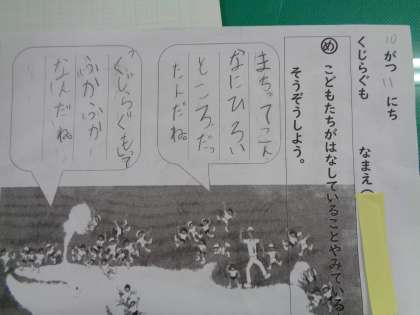 10がつ11にち
くじらぐも　なまえ（
め　こどもたちがはなしていることやみている
そうぞうしよう。
まちってこん
なにひろい
ところだっ
たんだね。
くじらぐもって
ふかふか
なんだね。